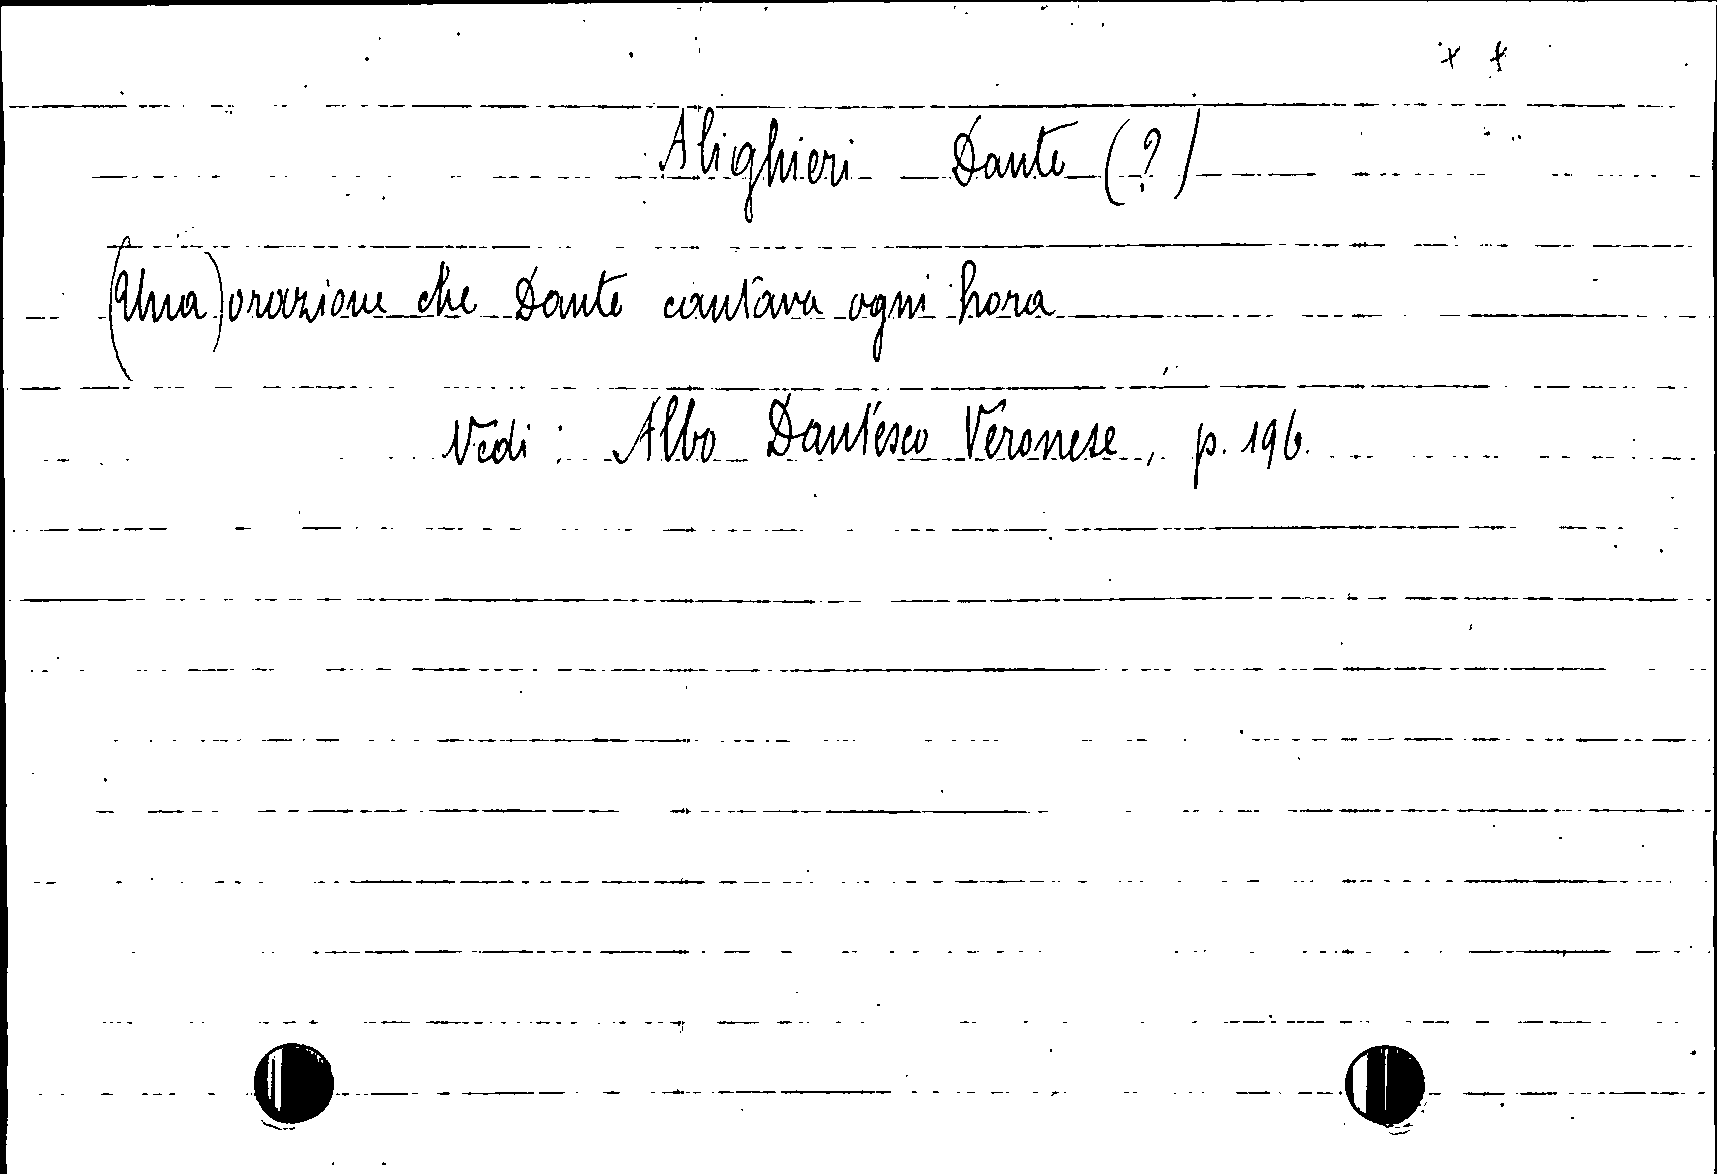 + +
Alighieri Dante (?)
(Una) orazione che Dante cantava ogni hora
Vedi : Albo Dantesco Veronese, p. 196.